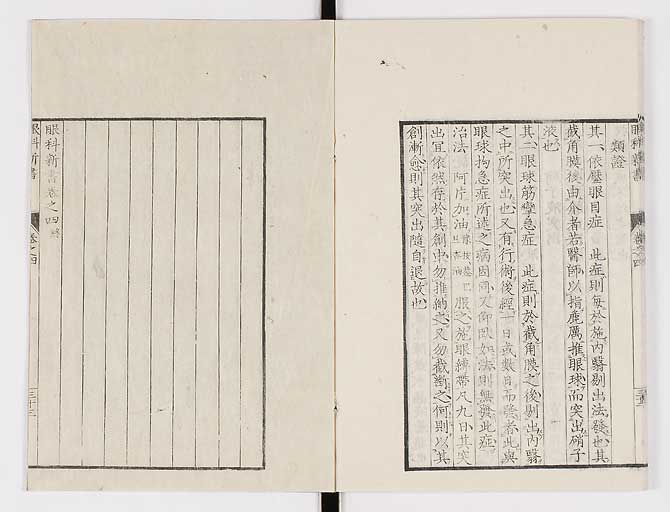 類證
其一、依壓眼目症 此症則每於施内翳剔出法發也其
截角膜後由介者若醫師以指麁厲推眼球而突出硝子
液也
其二眼球筋攣急症 此症則於截角膜之後剔出内翳
之中所突出也又有行術後經一日或數日而發者此與
眼球拘急症所述之病因同又仰臥如法則無發此症
治法 阿片加油 服之施眼縛帶凡九日其突
出宜依然存於其創中勿推納之又勿截斷之何則以其
創漸愈則其突出隨自退故也
眼科新書
眼科新書卷之四
眼科新書
卷之四
三十三